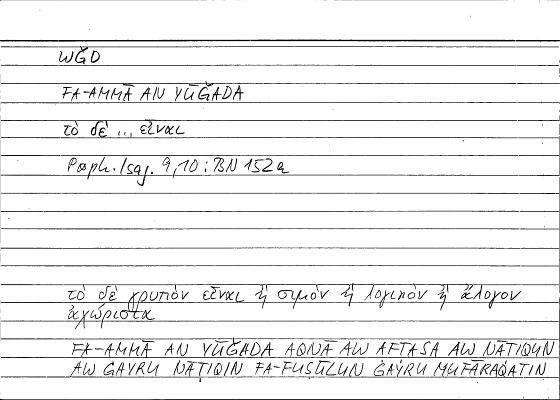 WǦD
FA-AMMĀ AN YŪǦADA
τὸ δὲ ... εἶναι
Porph. Isag. 9,10 : BN 152a
τὸ δὲ γρυπὸν εἶναι ἢ σιμὸν ἢ λογικὸν ἢ ἄλογον
ἀχώριστα
FA-AMMĀ AN YŪǦADA AQNĀ AW AFṬASA AW NĀṬIQUN
AW ĠAYRU NĀṬIQIN FA-FUṢŪLUN ĠAYRU MUFĀRAQATIN